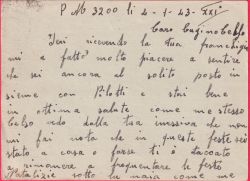 P M 3200 li 4-1-43-XXI
Caro Cugino Celso
Ieri ricevendo la tua franchigia
mi a fatto molto piacere a sentire
che sei ancora al solito posto in
sieme con Pilotti e stai bene
in ottima salute come me stesso
Celso vedo dalla tua missiva che non
mi fai nota che in queste feste sei
stato a casa o forse ti è toccato
a rimanere a frequentare le feste
Natalizie sotto la naia come me